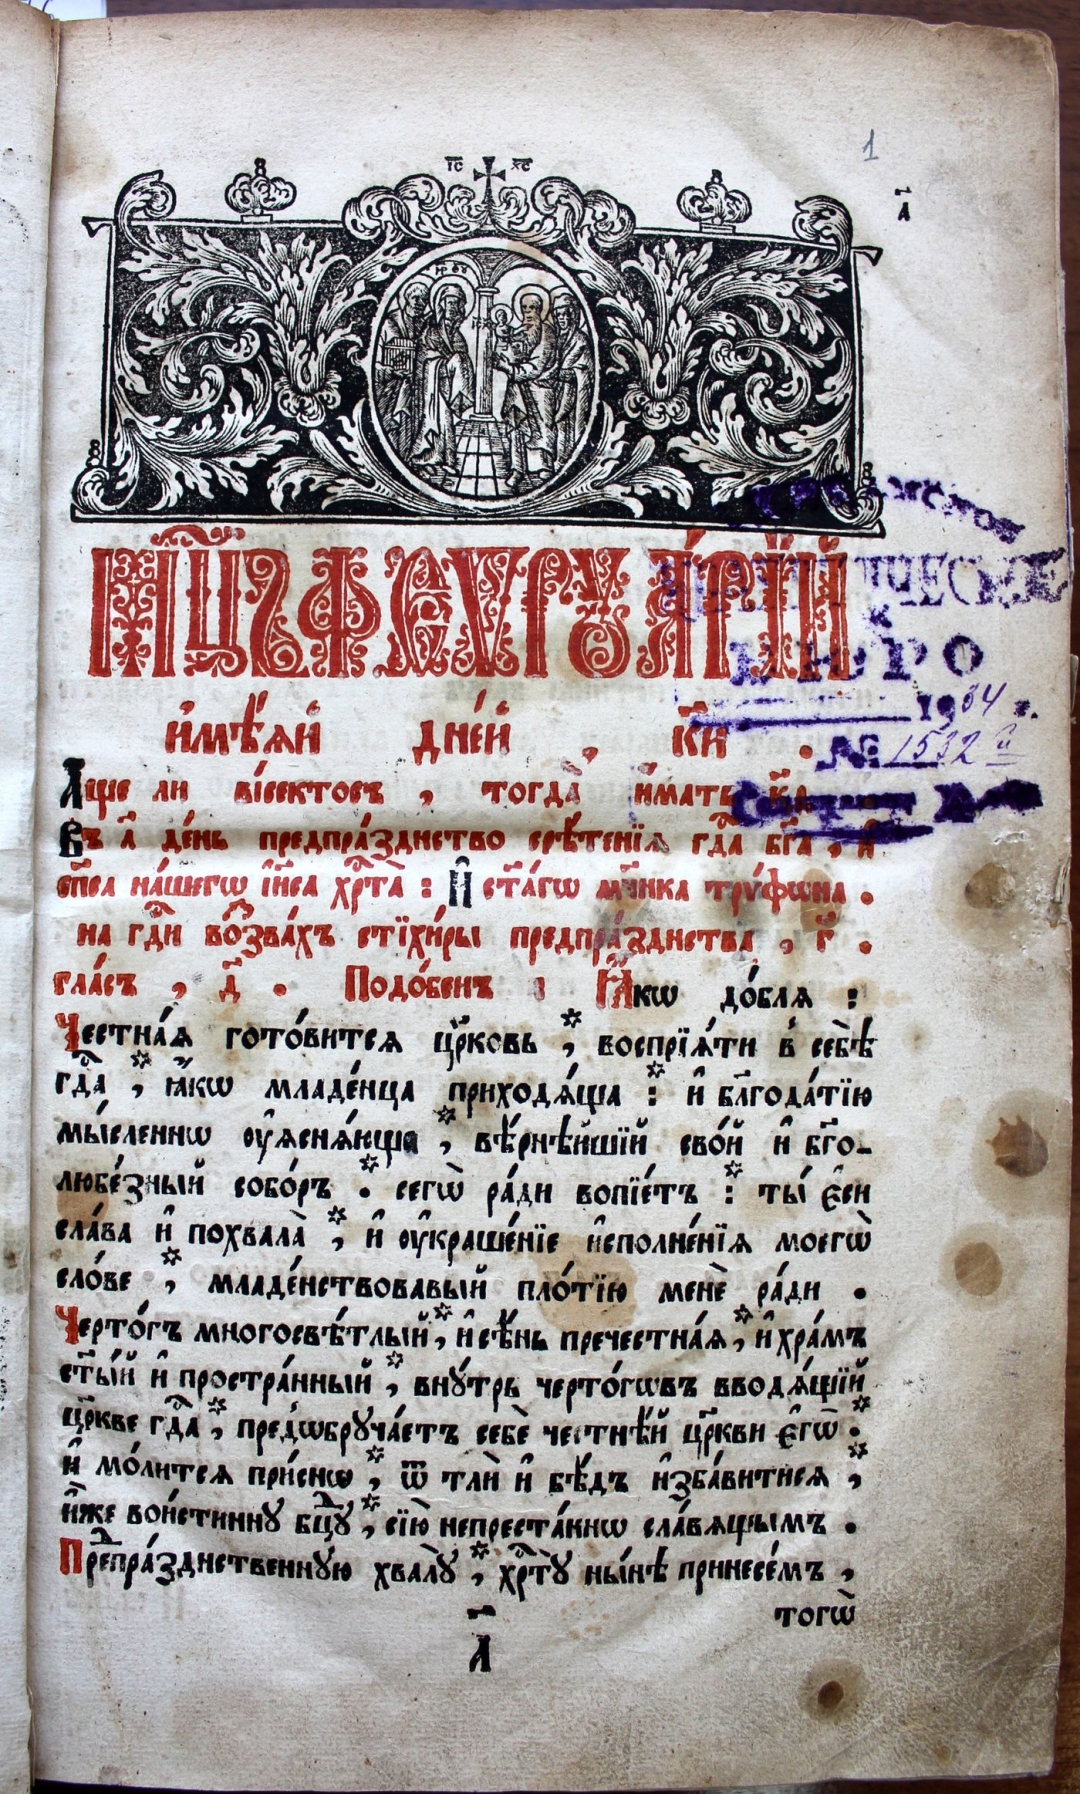 1
а҃
І҃С Х҃С
МЦ҃Ъ ФЕѴРꙋА́РІЙ
и҆мѣ́ѧй дне́й , к҃и .
А҆ще ли ві́сектосъ , тогда̀ и҆́мать к҃ѳ .
Въ а҃ де́нь предпра́зднство срѣ́тенїѧ гдⷭ҇а бг҃а , и҆
сп҃са на́шегѡ і҆и҃са хрⷭ҇та̀ : И҆ ст҃а́гѡ мч҃нка трѵ́фѡна .
на гдⷭ҇и во́звахъ стїхи́ры предпра́зднства , г҃ .
гла́съ , д҃ . Подо́бенъ : Ꙗ҆́кѡ до́блѧ :
Честна́ѧ гото́витсѧ цр҃ковь * , воспрїѧ́ти в̾ себѣ̀
гдⷭ҇а * , ꙗ҆́кѡ младе́нца приходѧ́ща * : и҆ бл҃года́тїю
мы́сленнѡ ᲂу҆ѧснѧ́юща * , вѣ́рнѣйшїй сво́й и҆ бг҃о-
любе́зный собо́ръ * . сегѡ̀ ра́ди вопїе́тъ * : ты̀ є҆сѝ
сла́ва и҆ похвала̀ * , и҆ ᲂу҆краше́нїе и҆сполне́нїѧ моегѡ̀
сло́ве * , младе́нствовавый пло́тїю менѐ ра́ди .
Черто́гъ многосвѣ́тлый * , и҆ сѣ́нь пречестна́ѧ * , и҆ хра́мъ
ст҃ы́й и҆ простра́нный * , внꙋ́трь черто́гѡвъ вводѧ́щїй
цр҃кве гдⷭ҇а * , пред̾ѡбрꙋча́етъ себѐ честнѣ́й цр҃кви є҆гѡ̀ * .
и҆ мо́литсѧ при́снѡ * , ѿ тлѝ и҆ бѣ́дъ и҆зба́витисѧ * ,
и҆̀же вои́стиннꙋ бцⷣꙋ * , сїю̀ непреста́ннѡ сла́вѧщымъ .
Препра́зднственнꙋю хвалꙋ̀ * , хрⷭ҇тꙋ̀ ны́нѣ принесе́мъ ,
тогѡ̀
А҃
БЮРО
1964 г.
№ 1532 й